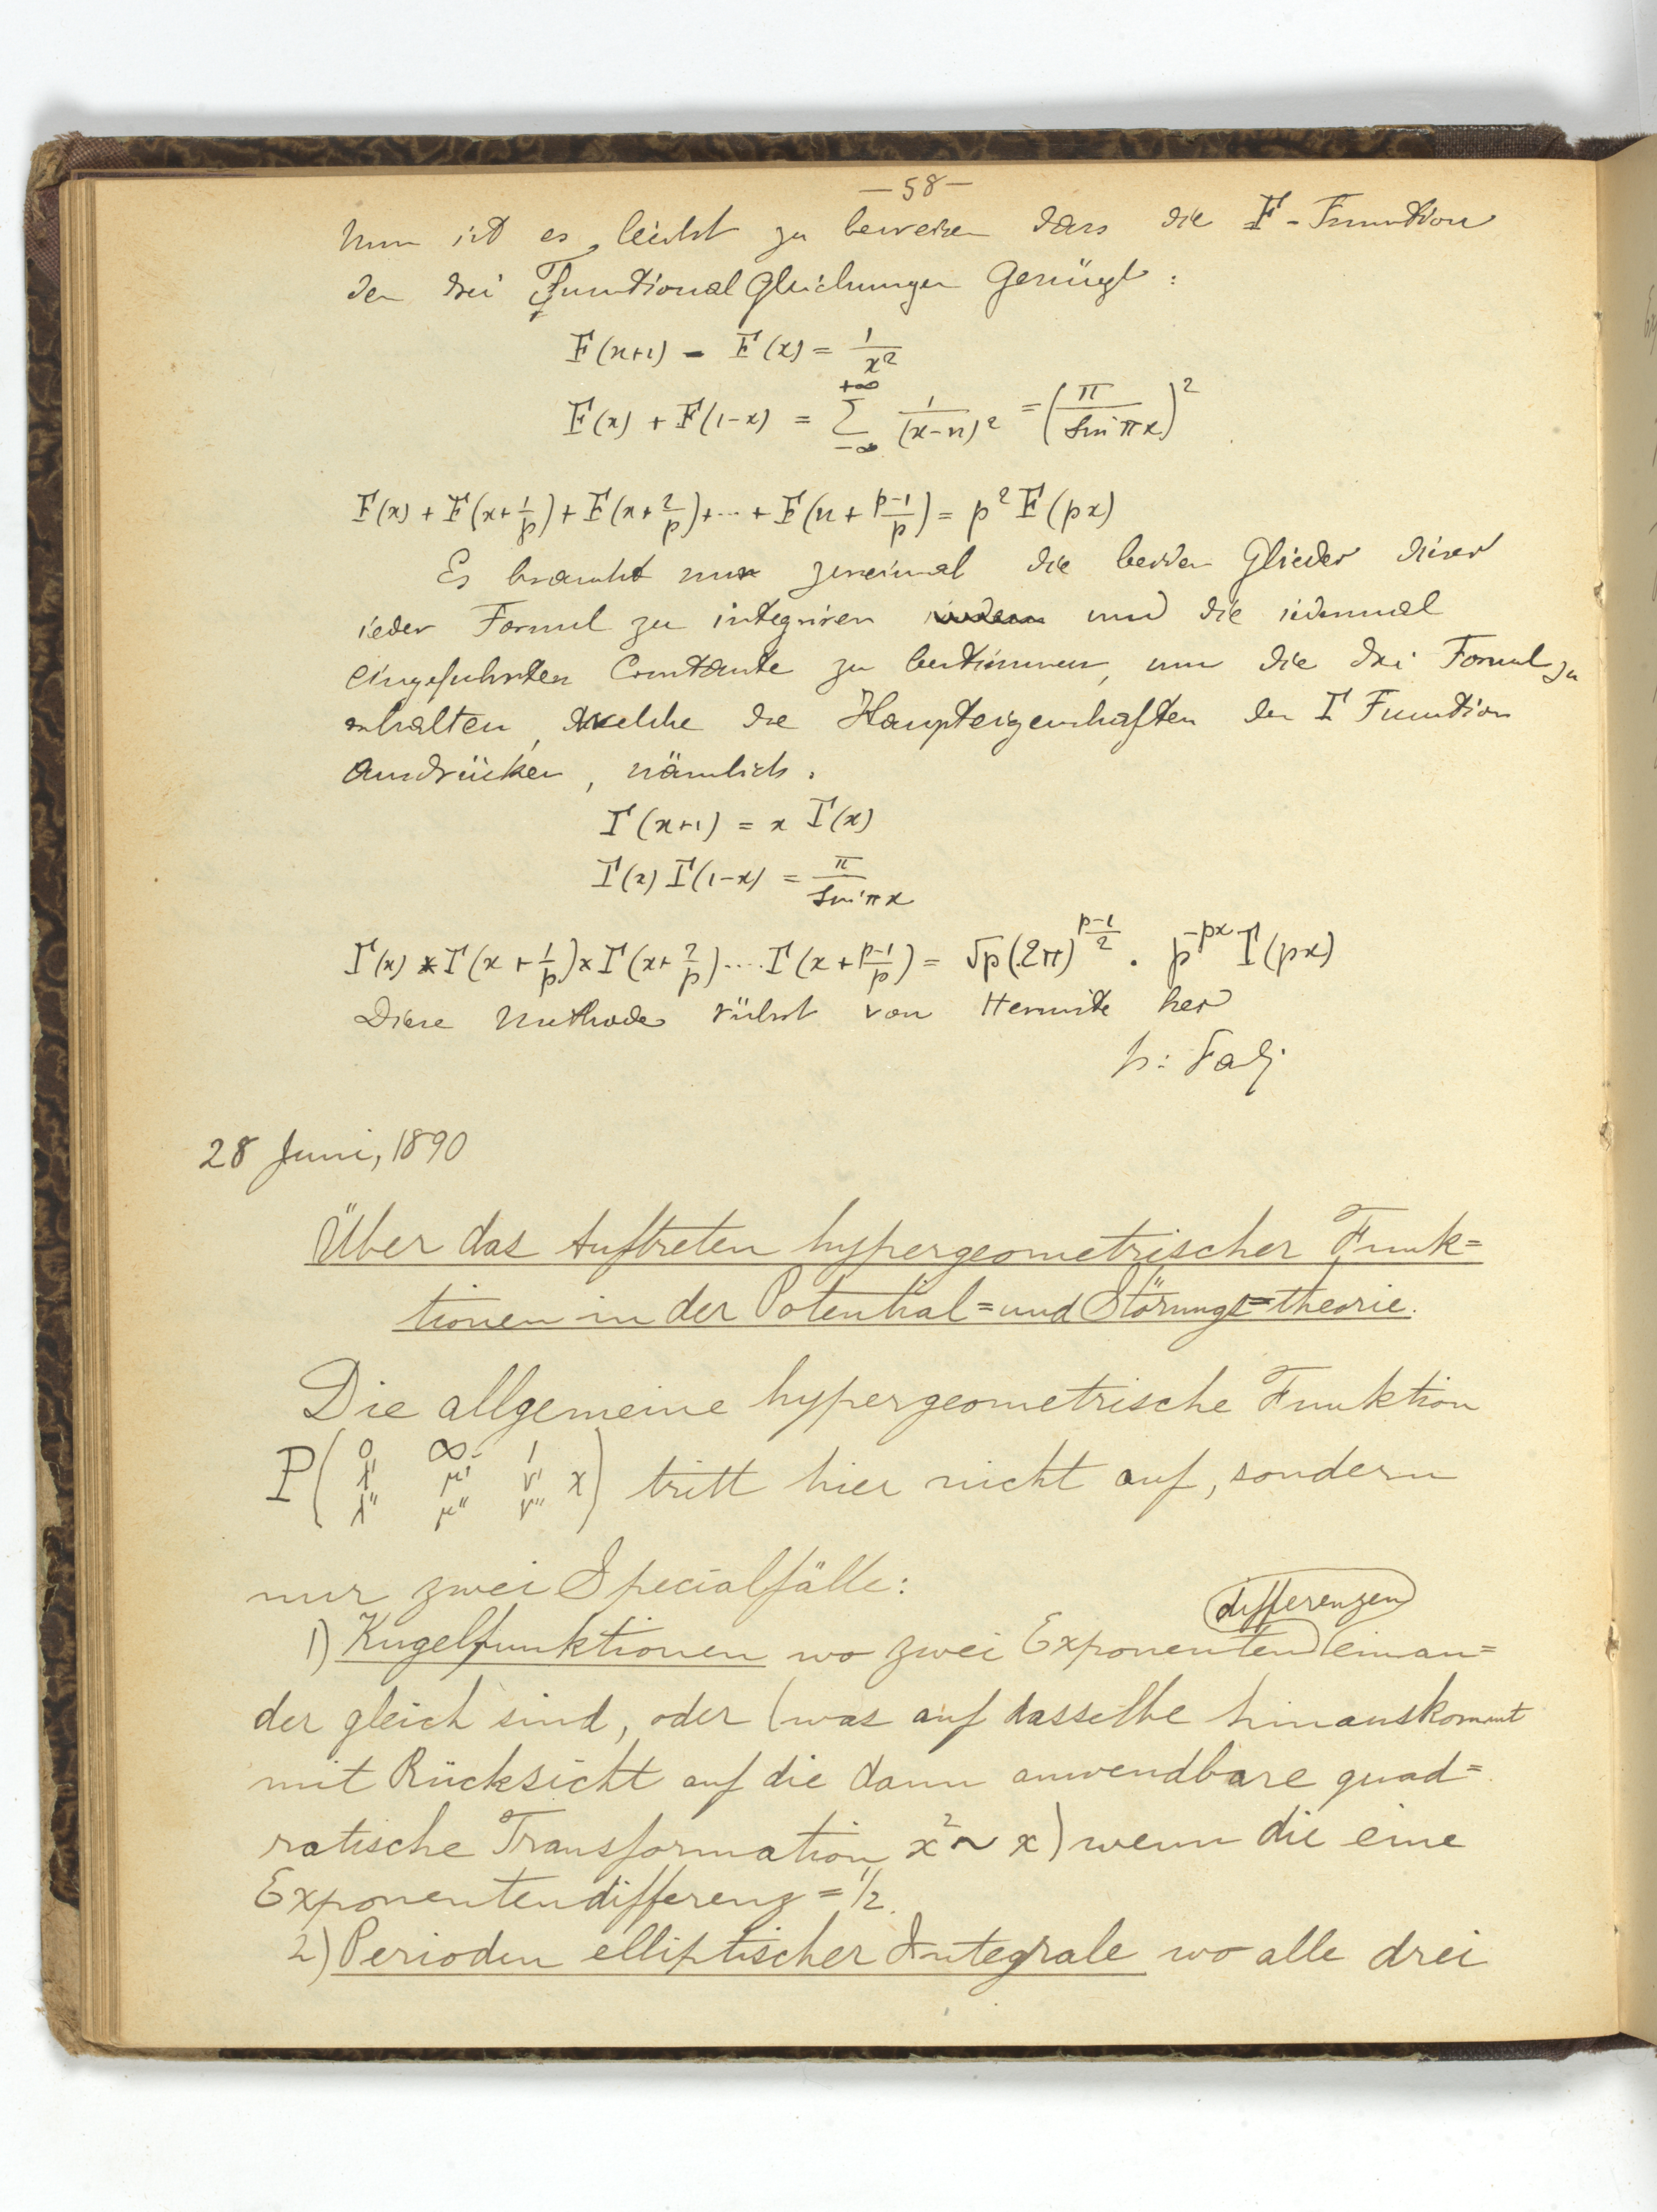 — 58 —
Nun ist es leicht zu beweisen dass die F - Function
den drei FunctionalGleichungen Genügt :
F(x+1) - F(x) = 1/x²
F(x) + F(1-x) = ∑_{-∞}^{+∞} 1/(x-n)² = (π/sin πx)²
F(x) + F(x+1/p) + F(x+2/p) + ... + F(x + (p-1)/p) = p² F(px)
Es braucht nur zweimal die beiden Glieder dieser
ieder Formul zu integriren und die
eingefuhrten Constante zu bestimmen, um die drei Formul zu
erhalten, welche die Haupteigenschaften der Γ Function
ausdrücken, nämlich.
Γ(x+1) = x Γ(x)
Γ(x) Γ(1-x) = π/sin πx
Γ(x) × Γ(x + 1/p) × Γ(x + 2/p) .... Γ(x + (p-1)/p) = √p (2π)^{(p-1)/2} . p^{-px} Γ(px)
Diese Methode rührt von Hermite her
28 Juni, 1890
Über das Auftreten hypergeometrischer Funk=
tionen in der Potential=und Störungs=theorie.
Die allgemeine hypergeometrische Funktion
P( 0 ∞ 1 / λ' μ' ν' x / λ'' μ'' ν'' ) tritt hier nicht auf, sondern
nur zwei Specialfälle:
differenzen
1) Kugelfunktionen wo zwei Exponenten einan=
der gleich sind, oder (was auf dasselbe hinauskommt
mit Rücksicht auf die dann anwendbare quad=
ratische Transformation x² ~ x) wenn die eine
Exponentendifferenz = 1/2.
2) Perioden elliptischer Integrale wo alle drei